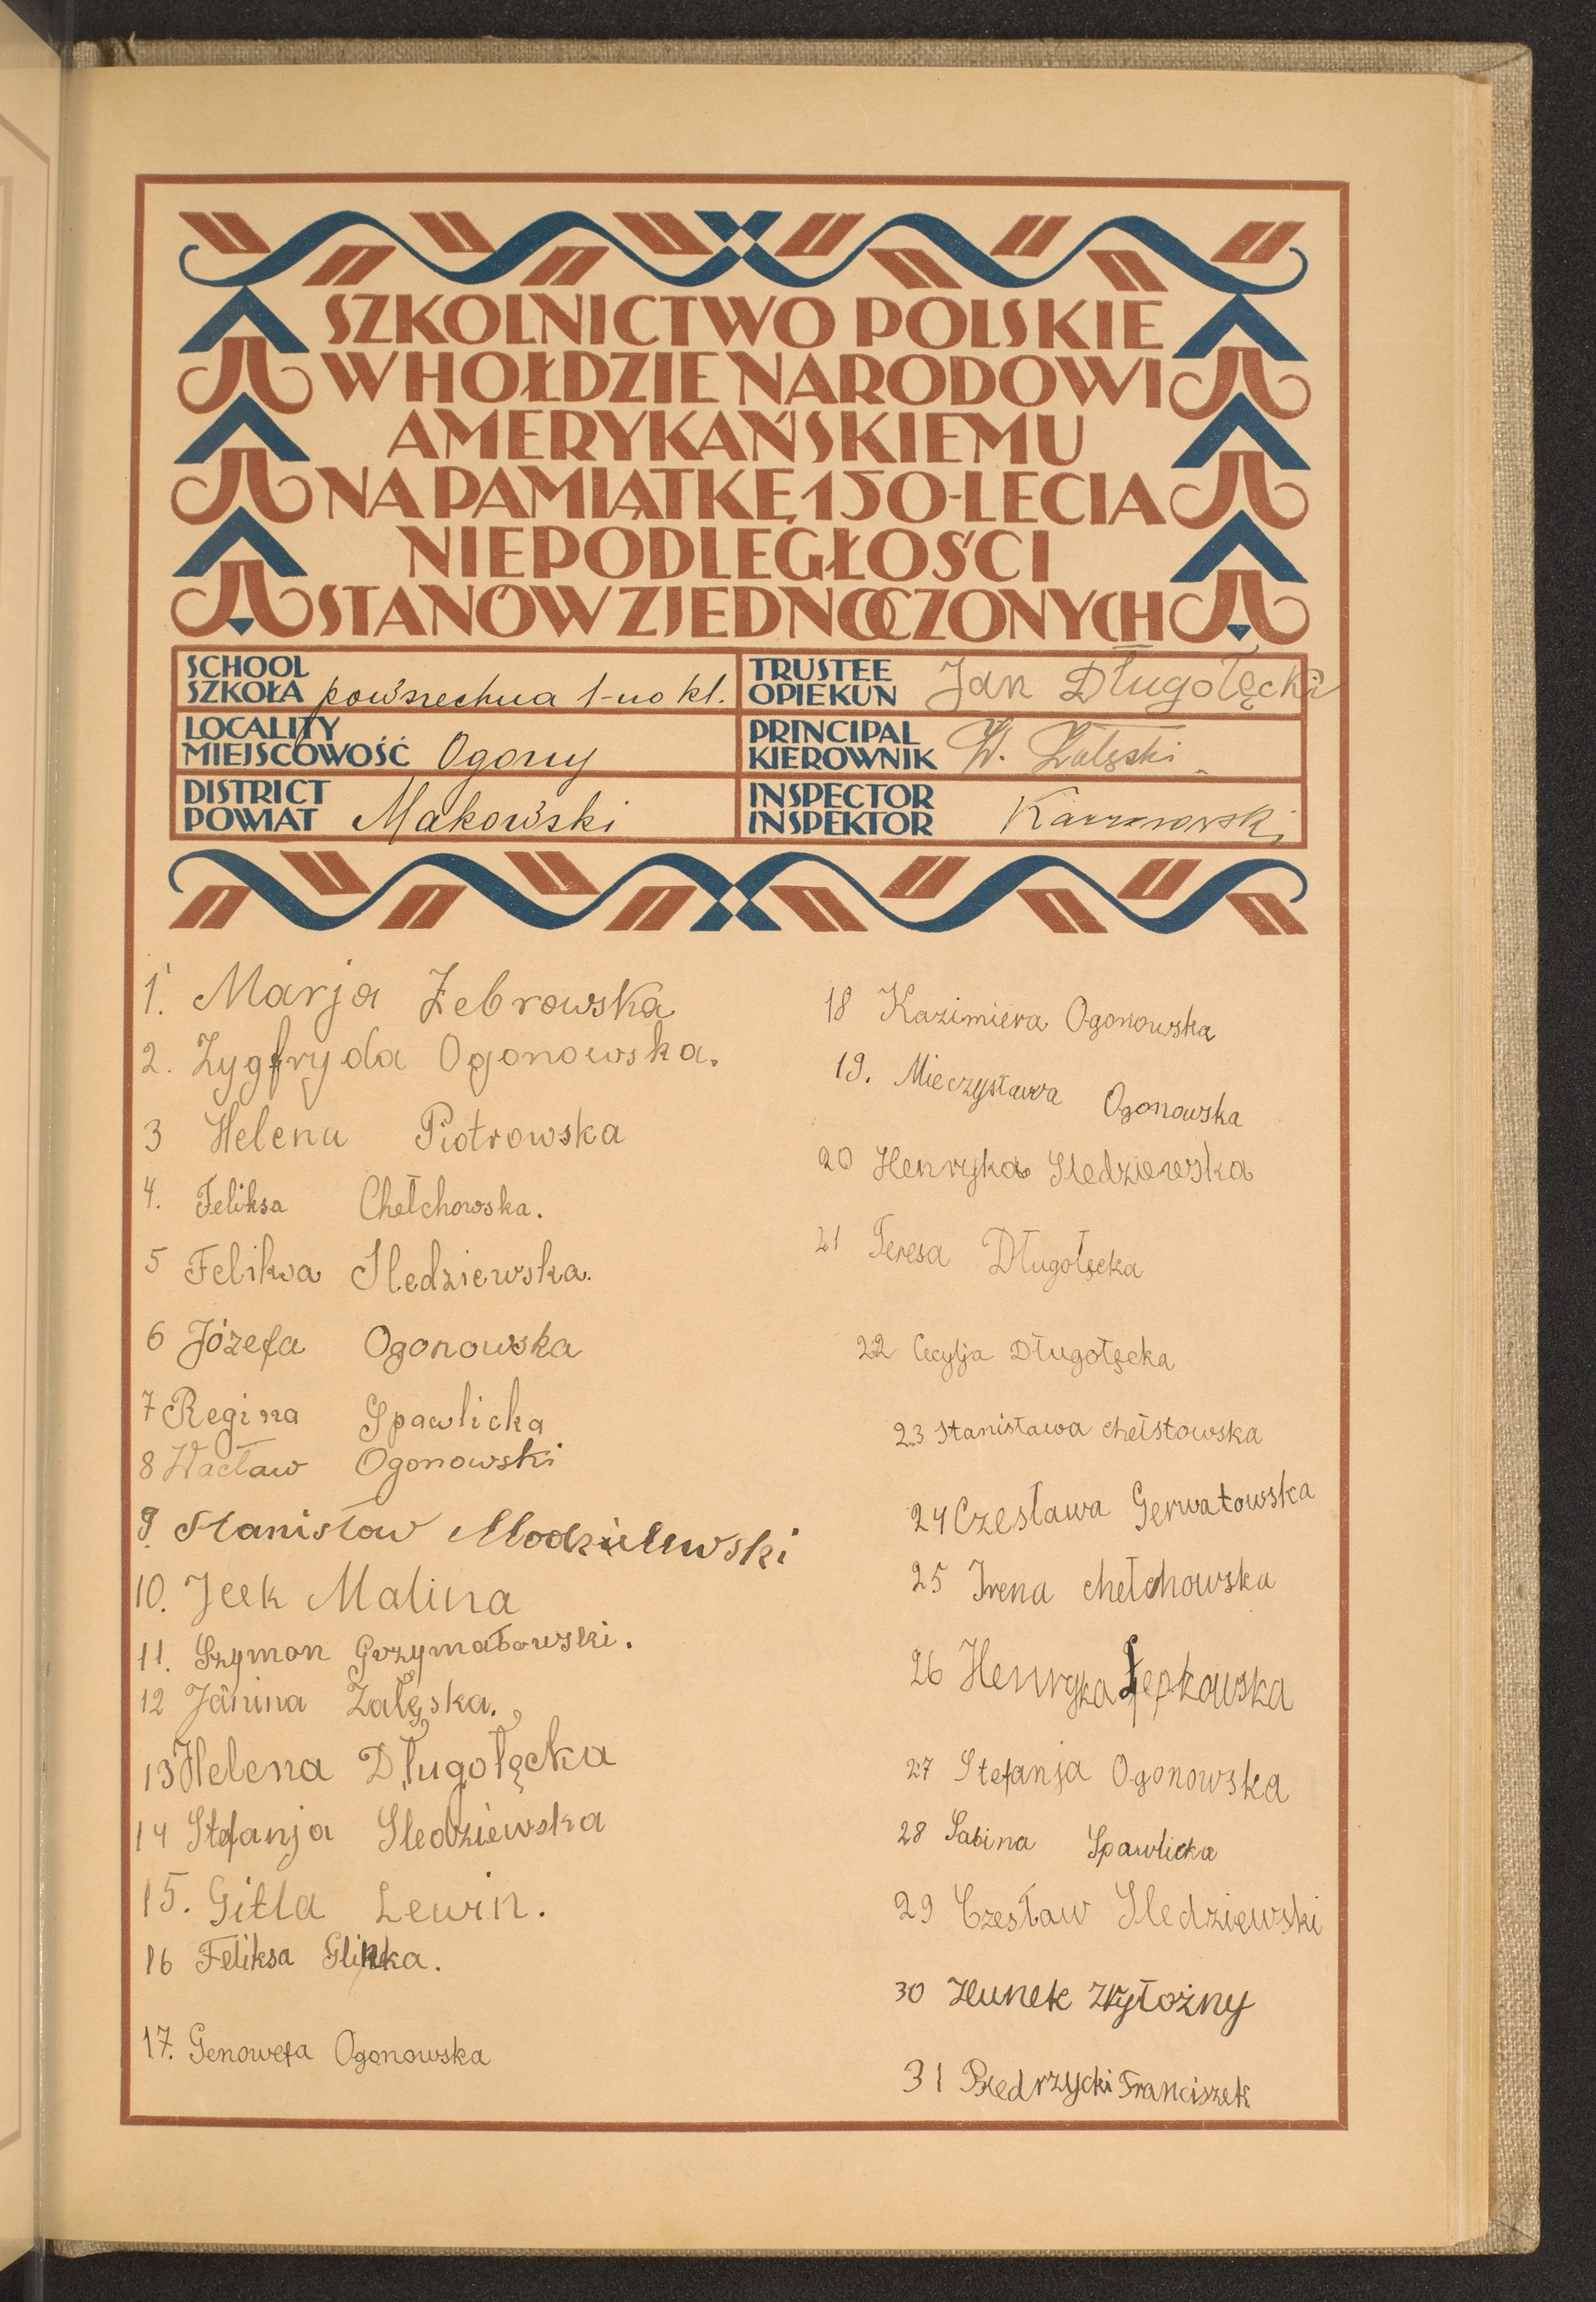 SZKOLNICTWO POLSKIE
W HOŁDZIE NARODOWI
AMERYKAŃSKIEMU
NA PAMIĄTKĘ 150-LECIA
NIEPODLEGŁOŚCI
STANÓW ZJEDNOCZONYCH
SCHOOL
SZKOŁA powszechna 1-no kl.
TRUSTEE
OPIEKUN Jan Długołęcki
LOCALITY
MIEJSCOWOŚĆ Ogony
PRINCIPAL
KIEROWNIK W. Załęski
DISTRICT
POWIAT Makowski
INSPECTOR
INSPEKTOR
1. Marja Żebrowska
2. Zygfryda Ogonowska.
3 Helena Piotrowska
4. Feliksa Chełchowska.
5 Feliksa Sledziewska.
6 Józefa Ogonowska
7 Regina Spawlicka
8 Wacław Ogonowski
9. Stanisław Modzelewski
10. Icek Malina
11. Szymon Grzymałowski.
12 Janina Załęska.
13 Helena Długołęcka
14 Stefanja Sledziewska
15. Gitla Lewin.
16 Feliksa Glinka.
17. Genowefa Ogonowska
18 Kazimiera Ogonowska
19. Mieczysława Ogonowska
20 Henryka Sledziewska
21 Teresa Długołęcka
22 Cecylja Długołęcka
23 Stanisława chełstowska
24 Czesława Gerwatowska
25 Irena chełchowska
26 Henryka Łepkowska
27 Stefanja Ogonowska
28 Sabina Spawlicka
29 Czesław Sledziewski
30
31 Piedrzycki Franciszek